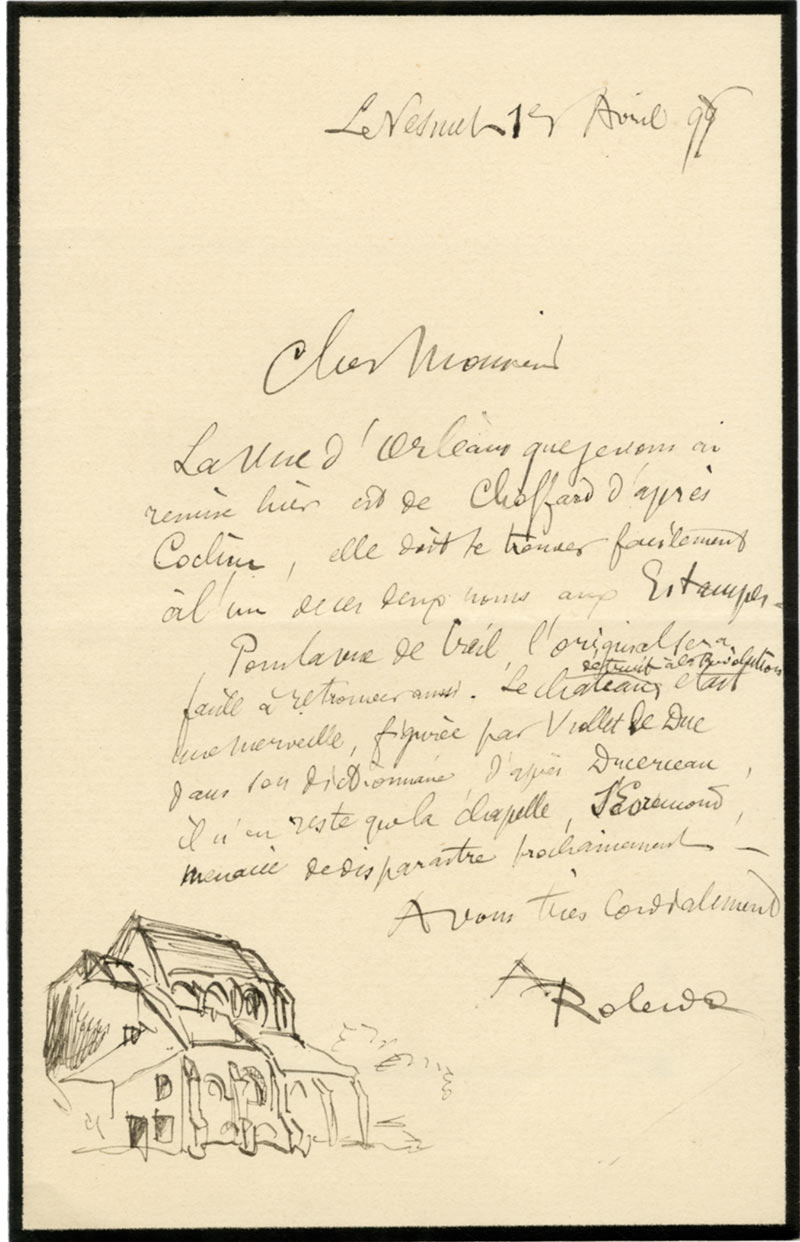 Le Vésinet 1er Avril 99
Cher Monsieur
La vue d'Orléans que je vous ai
remise hier est de Choffard d'après
Cochin, elle doit se trouver facilement
à l'un de ces deux noms aux Estampes -
Pour la vue de Creil l'original sera
facile à retrouver aussi. Le chateau, détruit à la Révolution était
une merveille, figurée par Viollet Le Duc
dans son dictionnaire d'après Ducerceau,
il n'en reste que la chapelle, St Evremond,
menacée de disparaitre prochainement -
A vous très Cordialement
A. Robida